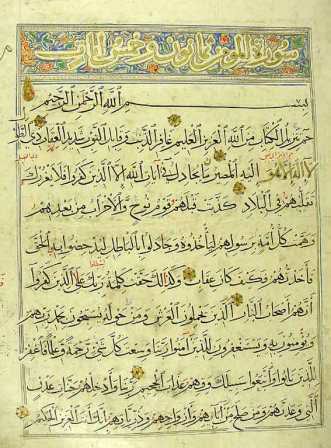 سورة المؤمن ثمانون وخمس ايات
بسم الله الرحمن الرحيم
حم تنزيل الكتاب من الله العزيز العليم غافر الذنب وقابل التوب شديد العقاب ذي الطول
لا اله الا هو اليه المصير ما يجادل في ايات الله الا الذين كفروا فلا يغررك
تقلبهم في البلاد كذبت قبلهم قوم نوح والاحزاب من بعدهم
وهمت كل امة برسولهم ليأخذوه وجادلوا بالباطل ليدحضوا به الحق
فاخذتهم فكيف كان عقاب وكذلك حقت كلمة ربك على الذين كفروا
انهم اصحاب النار الذين يحملون العرش ومن حوله يسبحون بحمد ربهم
ويؤمنون به ويستغفرون للذين آمنوا ربنا وسعت كل شئ رحمة وعلما فاغفر
للذين تابوا واتبعوا سبيلك وقهم عذاب الجحيم ربنا وادخلهم جنات عدن
التي وعدتهم ومن صلح من آبائهم وازواجهم وذرياتهم انك انت العزيز الحكيم